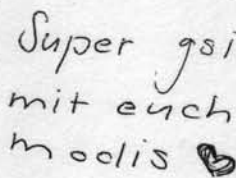 Super gsi
mit euch
modis